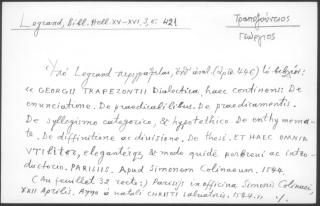 Legrand, Bibl. Hell. XV-XVI, 3, σ. 421
Τραπεζούντιος
Γεώργιος
Ὑπὸ Legrand περιγράφεται, ὑπ' ἀριθ. 446) τὸ βιβλίον:
« GEORGII TRAPEZONTII Dialectica, haec continens. De
enunciatione. De praedicalibibus. De praedicamentis.
De syllogismo categorico, & hypothetico De enthymema-
te. De diffinitione ac divisione. De thesi. ET HAEC OMNIA
VTI liter, eleganterq;, & modo quidē perbrevi ac intro-
ductorio. PARISIIS. Apud Simonem Colinaeum. 1544.
(Au feuillet 32 recto:) Parisiis in officina Simonis Colinaei,
XXII Aprilis. Anno à natali CHRISTI salvatoris. 1544.» ./.